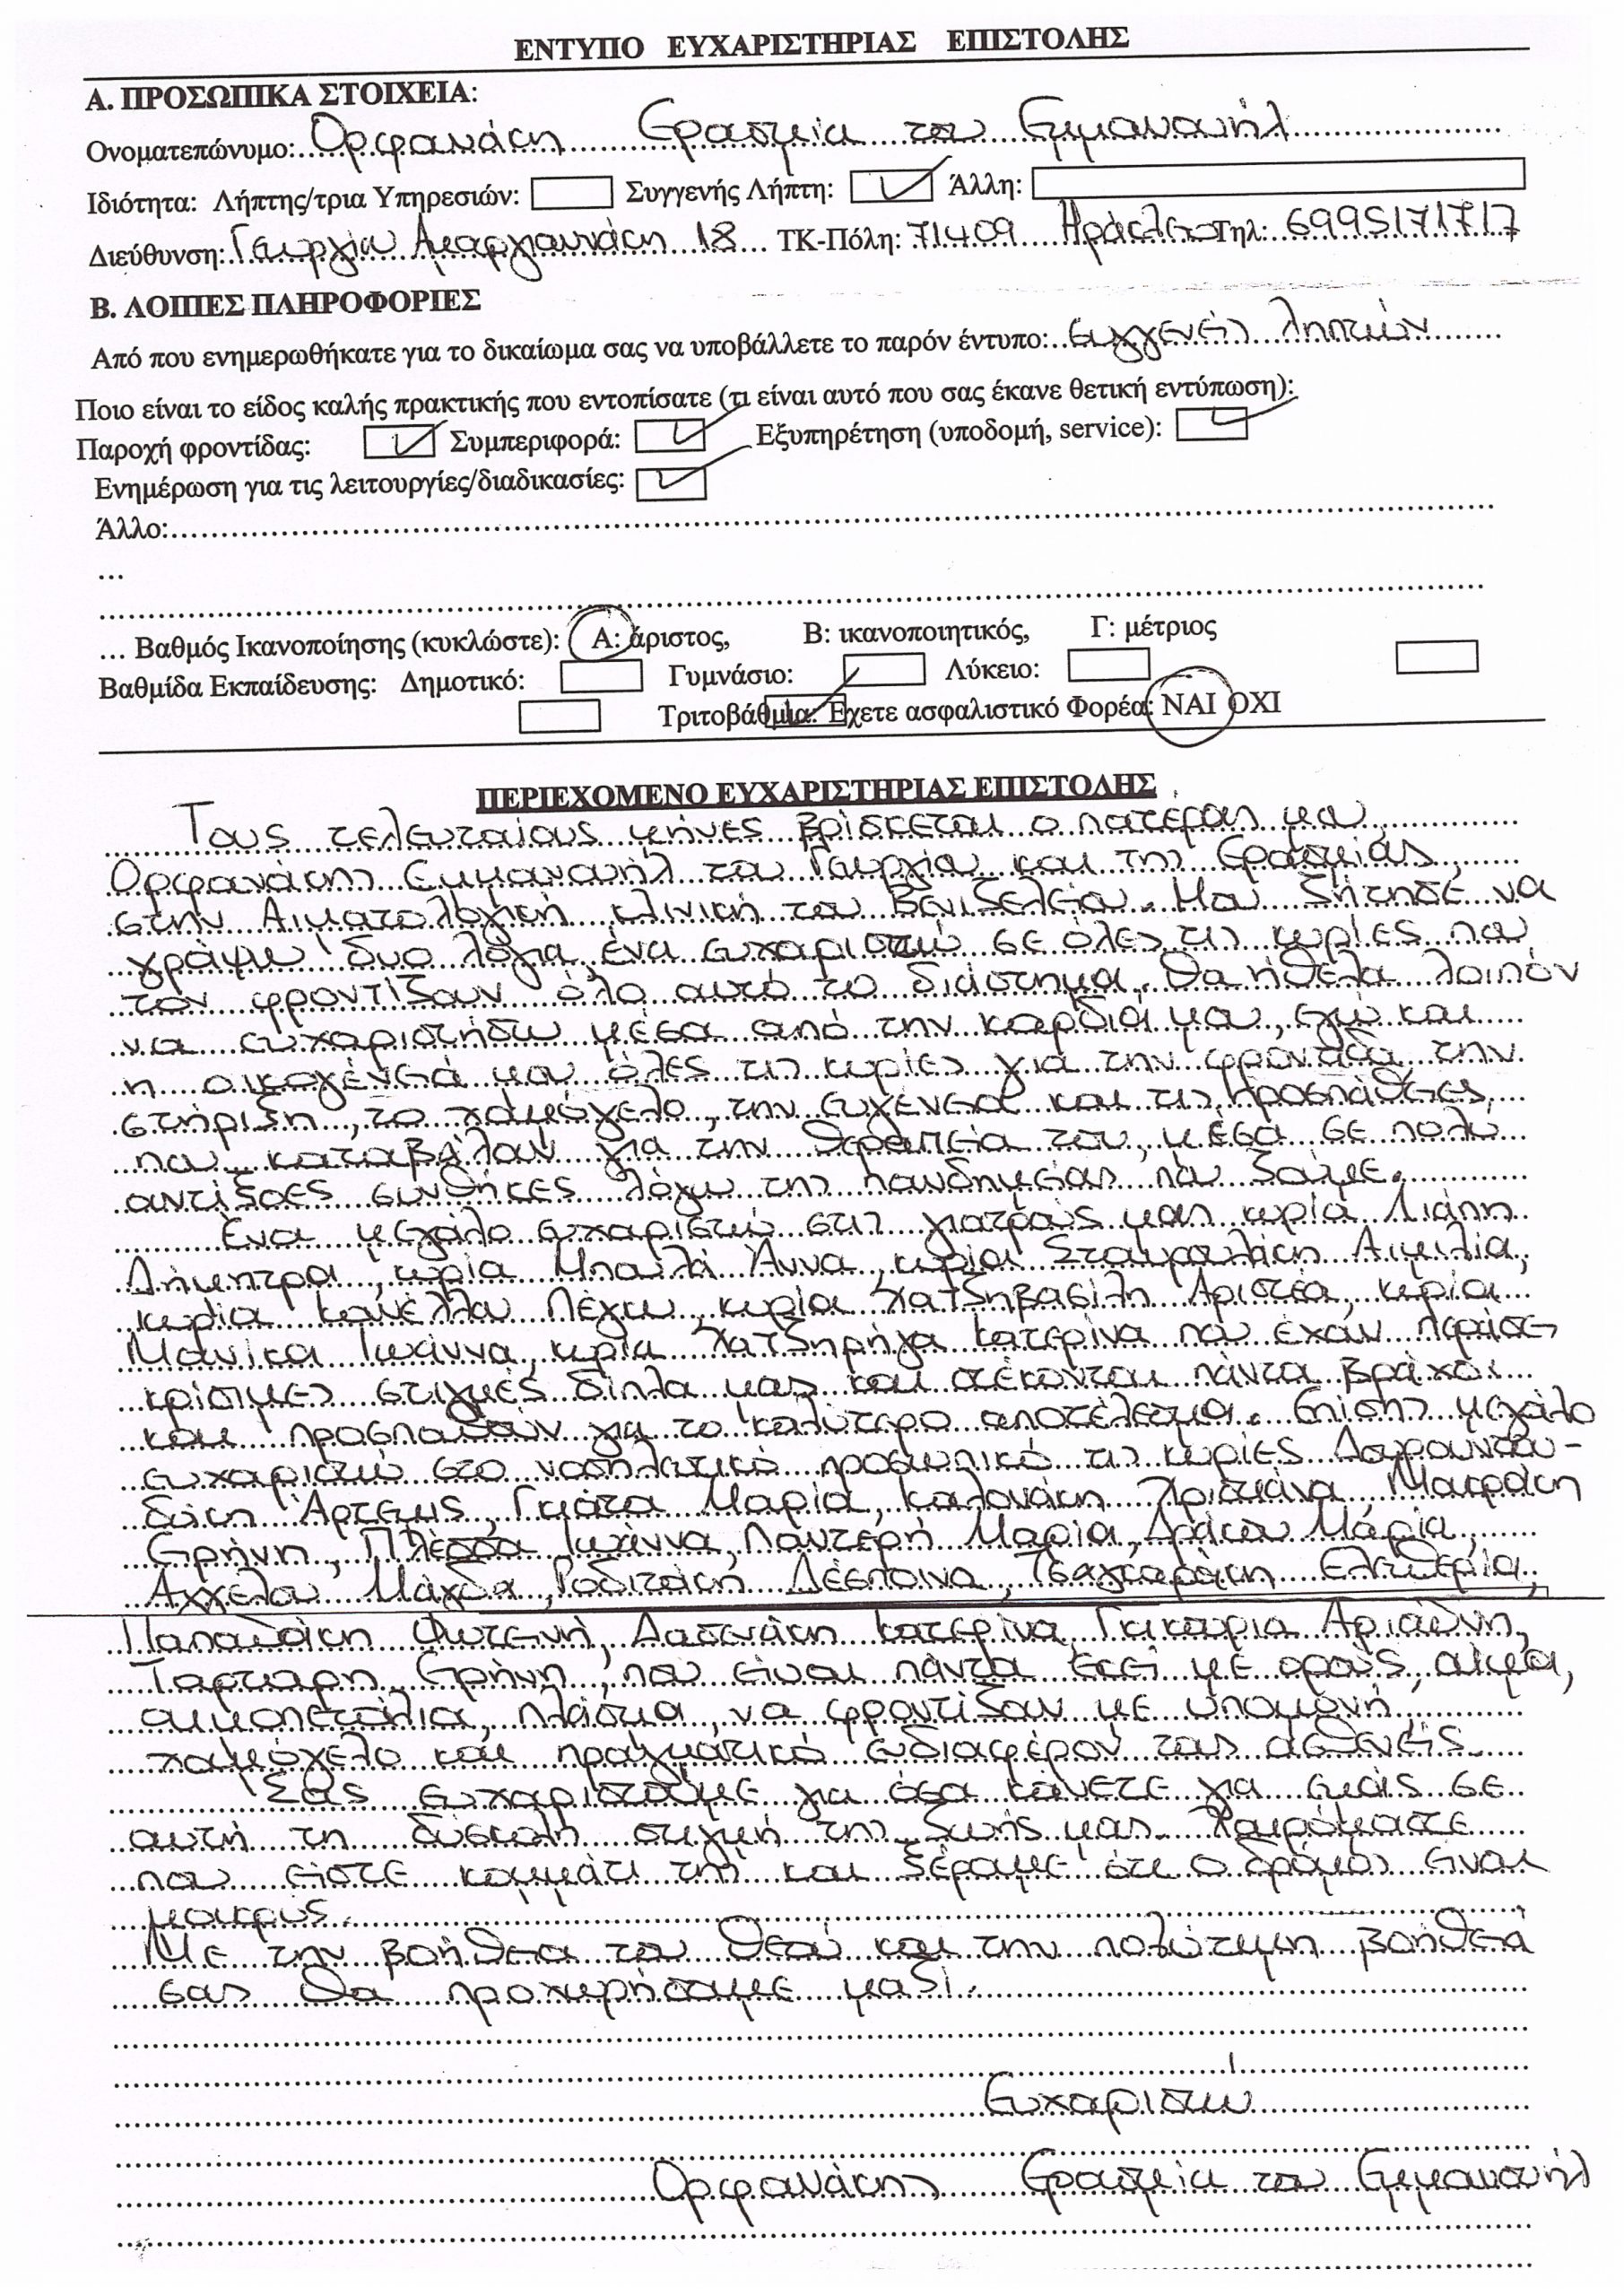 ΕΝΤΥΠΟ ΕΥΧΑΡΙΣΤΗΡΙΑΣ ΕΠΙΣΤΟΛΗΣ
Α. ΠΡΟΣΩΠΙΚΑ ΣΤΟΙΧΕΙΑ:
Ονοματεπώνυμο: Ορφανάκη Ερασμία του Εμμανουήλ
Ιδιότητα: Λήπτης/τρια Υπηρεσιών: Συγγενής Λήπτη: Άλλη:
Διεύθυνση: Γεωργίου 18 ΤΚ-Πόλη: 71409 Ηράκλειο Τηλ: 6995171717
Β. ΛΟΙΠΕΣ ΠΛΗΡΟΦΟΡΙΕΣ
Από που ενημερωθήκατε για το δικαίωμα σας να υποβάλλετε το παρόν έντυπο: συγγενείς ληπτών
Ποιο είναι το είδος καλής πρακτικής που εντοπίσατε (τι είναι αυτό που σας έκανε θετική εντύπωση):
Παροχή φροντίδας: Συμπεριφορά: Εξυπηρέτηση (υποδομή, service):
Ενημέρωση για τις λειτουργίες/διαδικασίες:
Άλλο:
...
... Βαθμός Ικανοποίησης (κυκλώστε): Α: άριστος, Β: ικανοποιητικός, Γ: μέτριος
Βαθμίδα Εκπαίδευσης: Δημοτικό: Γυμνάσιο: Λύκειο:
Τριτοβάθμια: Έχετε ασφαλιστικό Φορέα: ΝΑΙ ΟΧΙ
ΠΕΡΙΕΧΟΜΕΝΟ ΕΥΧΑΡΙΣΤΗΡΙΑΣ ΕΠΙΣΤΟΛΗΣ
Τους τελευταίους μήνες βρίσκεται ο πατέρας μου,
Ορφανάκης Εμμανουήλ του Γεωργίου και της Ερασμίας,
στην Αιματολογική κλινική του Βενιζελείου. Μου ζήτησε να
γράψω δυο λόγια, ένα ευχαριστώ σε όλες τις κυρίες που
τον φροντίζουν όλο αυτό το διάστημα. Θα ήθελα λοιπόν
να ευχαριστήσω μέσα από την καρδιά μου, εγώ και
η οικογένειά μου όλες τις κυρίες για την φροντίδα, την
στήριξη, το χαμόγελο, την ευγένεια και τις προσπάθειες
που καταβάλουν για την θεραπεία του, μέσα σε πολύ
αντίξοες συνθήκες λόγω της πανδημίας που ζούμε.
Ένα μεγάλο ευχαριστώ στις γιατρούς μας κυρία Λιάπη
Δήμητρα, κυρία Μπαιλά Άννα, κυρία Σταυρουλάκη Αιμιλία,
κυρία Κανέλλου Πέγκυ, κυρία Χατζηβασίλη Αριστέα, κυρία
Μανίκα Ιωάννα, κυρία Χατζηρήγα Κατερίνα που έχουν περάσει
κρίσιμες στιγμές δίπλα μας και στέκονται πάντα βράχοι
και προσπαθούν για το καλύτερο αποτέλεσμα. Επίσης μεγάλο
ευχαριστώ στο νοσηλευτικό προσωπικό τις κυρίες
Άρτεμις, Γκιάτα Μαρία, Καλονάκη Χριστιάνα, Μακράκη
Ειρήνη, Πλέσσα Ιωάννα, Παντερή Μαρία, Δράκου Μαρία,
Αγγέλου Μάγδα, Ροδιτάκη Δέσποινα, Τσαγκαράκη Ελευθερία,
Παπαδάκη Φωτεινή, Δασενάκη Κατερίνα, Αριάδνη,
Ειρήνη, που είναι πάντα εκεί με ορούς, αίμα,
αιμοπετάλια, πλάσμα, να φροντίζουν με υπομονή,
χαμόγελο και πραγματικό ενδιαφέρον τους ασθενείς.
Σας ευχαριστούμε για όσα κάνετε για εμάς σε
αυτή τη δύσκολη στιγμή της ζωής μας. Χαιρόμαστε
που είστε κομμάτι της και ξέρουμε ότι ο δρόμος είναι
μακρύς.
Με την βοήθεια του Θεού και την πολύτιμη βοήθειά
σας θα προχωρήσουμε μαζί.
Ευχαριστώ
Ορφανάκη Ερασμία του Εμμανουήλ